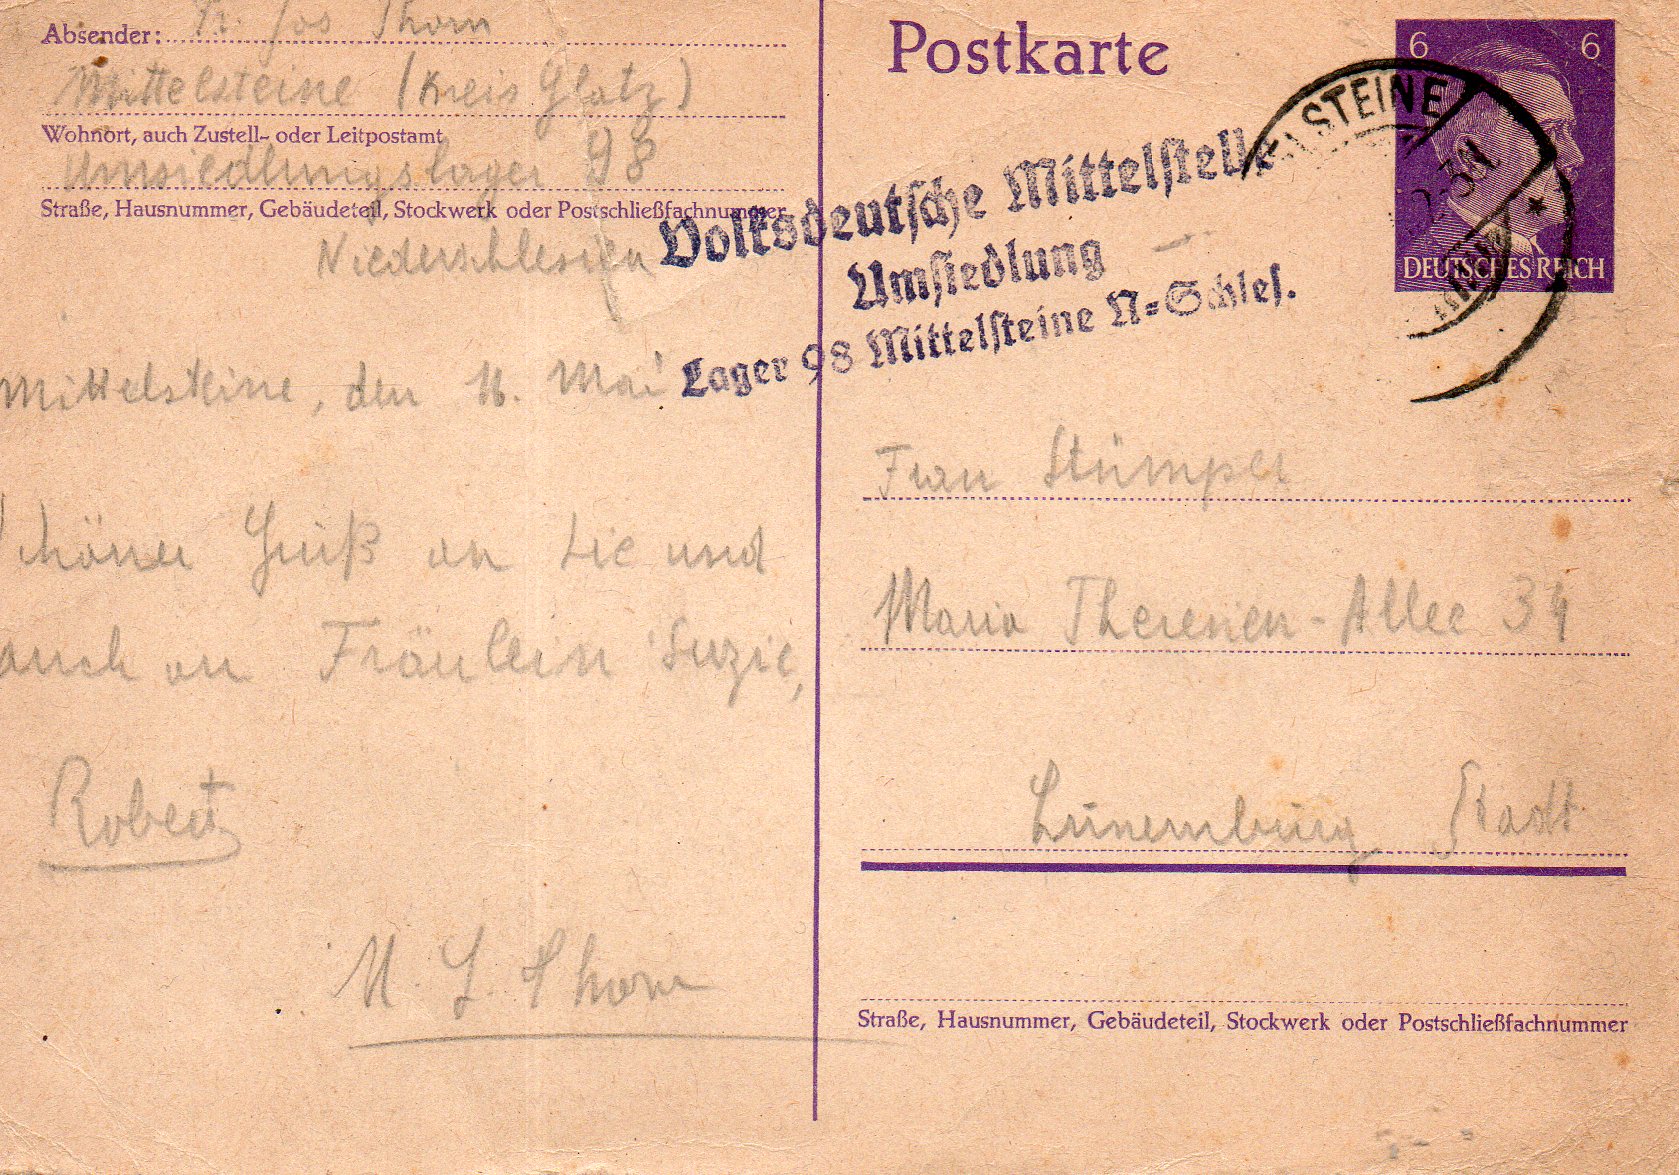 Absender: Fr. Jos Thorn
Mittelsteine (Kreis Glatz)
Wohnort, auch Zustell- oder Leitpostamt
Umsiedlungslager 98
Straße, Hausnummer, Gebäudeteil, Stockwerk oder Postschließfachnummer
Niederschlesien
Mittelsteine, den 16. Mai
Schöner Gruß an Sie und
auch an Fräulein Suzie,
Robert
M. J. Thorn
Postkarte
6 6
DEUTSCHES REICH
ELSTEINE
Volksdeutsche Mittelstelle
Umsiedlung
Lager 98 Mittelsteine N=Schles.
Frau Stümper
Maria Theresien-Allee 34
Lünemburg Stadt
Straße, Hausnummer, Gebäudeteil, Stockwerk oder Postschließfachnummer